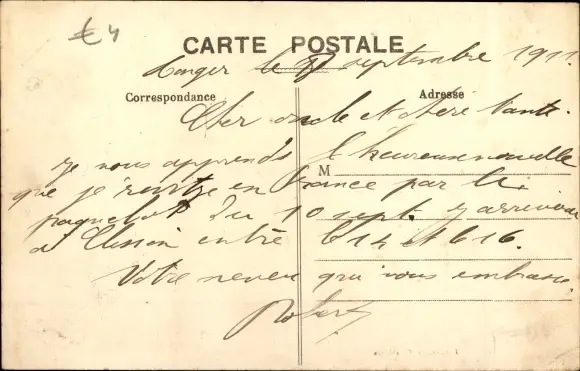 €4
CARTE POSTALE
Tanger le septembre 1911
Correspondance
Adresse
Cher oncle et chère tante.
Je vous apprends l'heureuse nouvelle
M
que je rentre en France par le
paquebot du 10 sept. j'arriverai
à Clisson entre le 14 et le 16.
Votre neveu qui vous embrasse
Robert